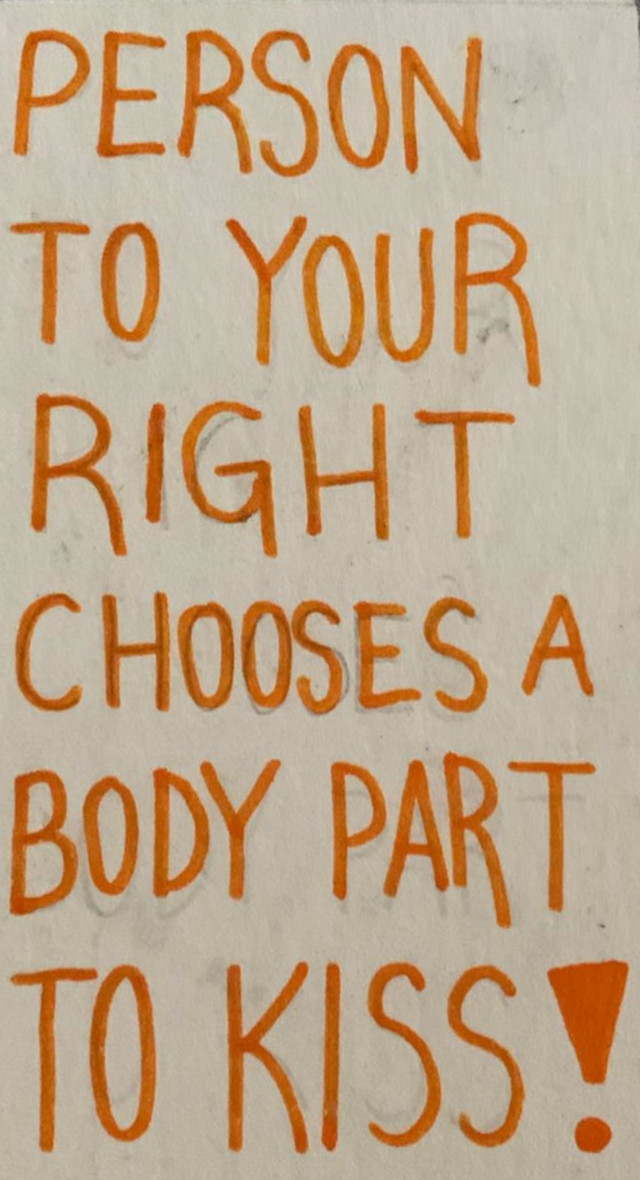 PERSON
TO YOUR
RIGHT
CHOOSES A
BODY PART
TO KISS!